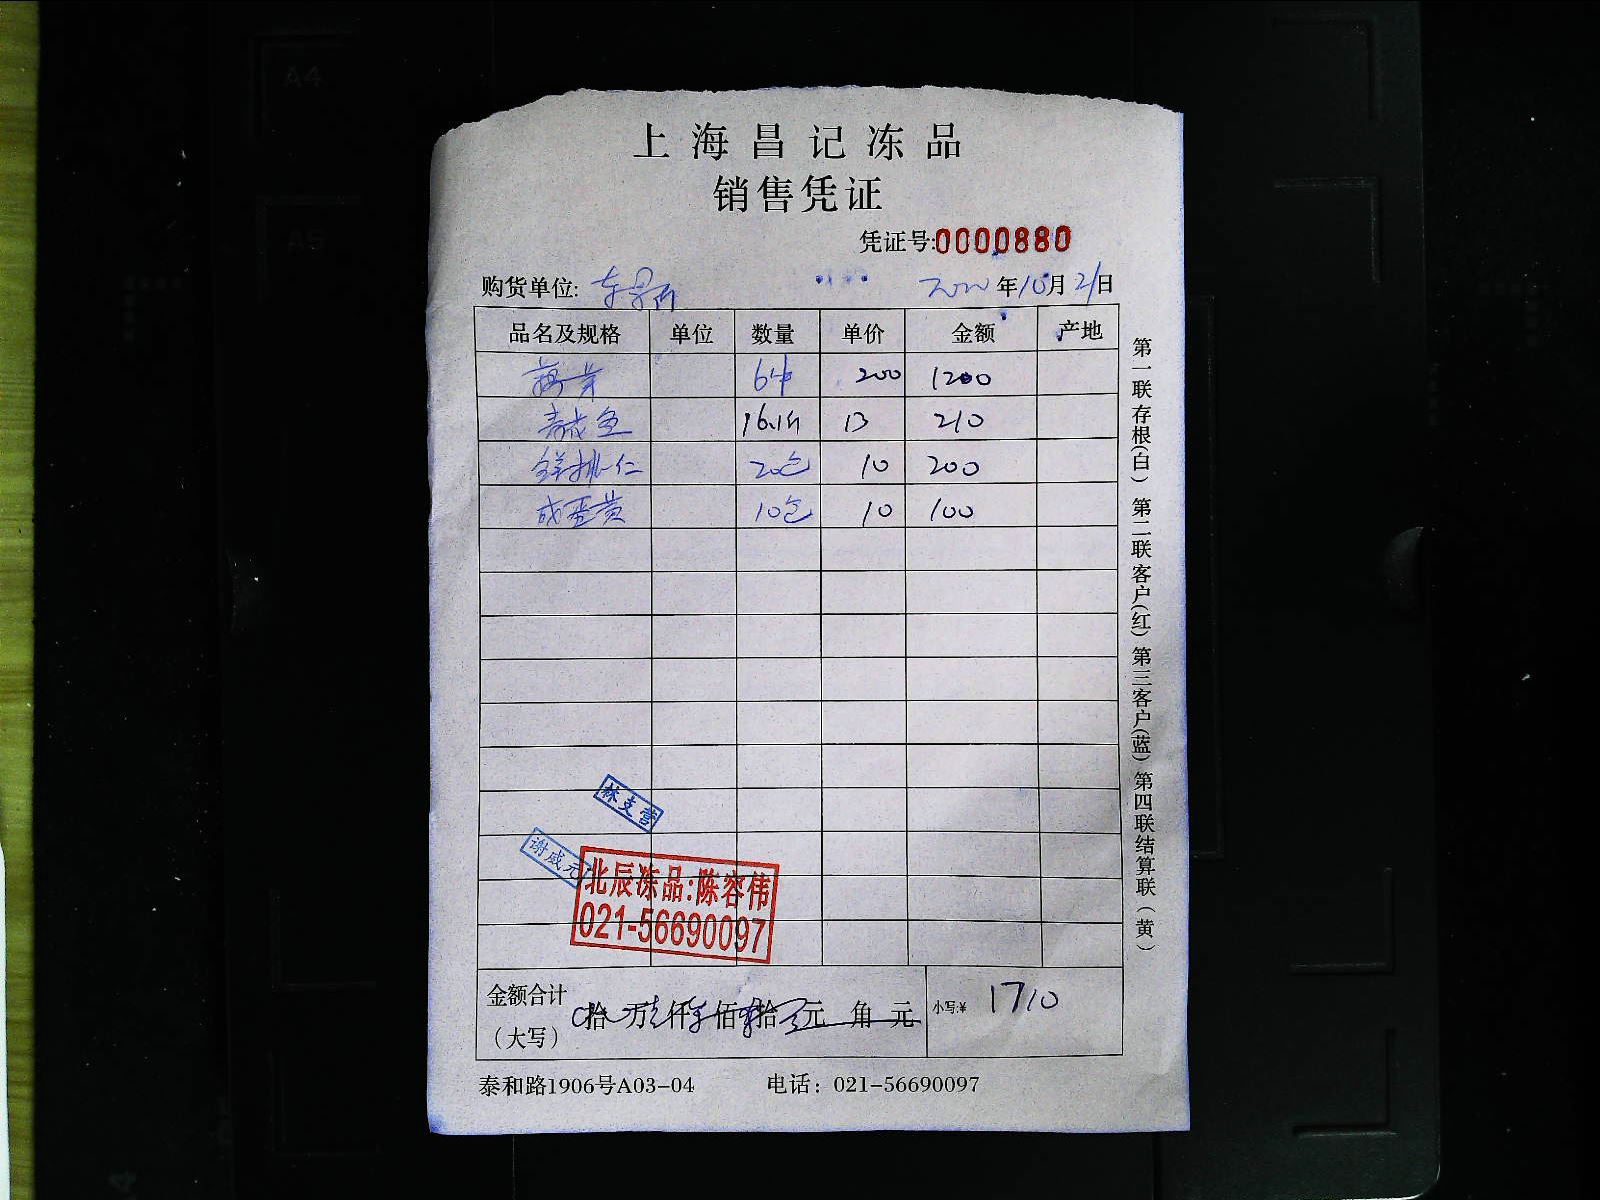 A4
A5
上海昌记冻品
销售凭证
凭证号:0000880
购货单位: 年10月21日
品名及规格 单位 数量 单价 金额 产地
6件 200 1200
16.1斤 13 210
20包 10 200
咸蛋黄 10包 10 100
林支营
谢成元
北辰冻品:陈容伟
021-56690097
金额合计
(大写)
拾 万 仟 佰 拾 元 角 元 小写:¥ 1710
泰和路1906号A03-04 电话: 021-56690097
第一联存根(白) 第二联客户(红) 第三客户(蓝) 第四联结算联(黄)